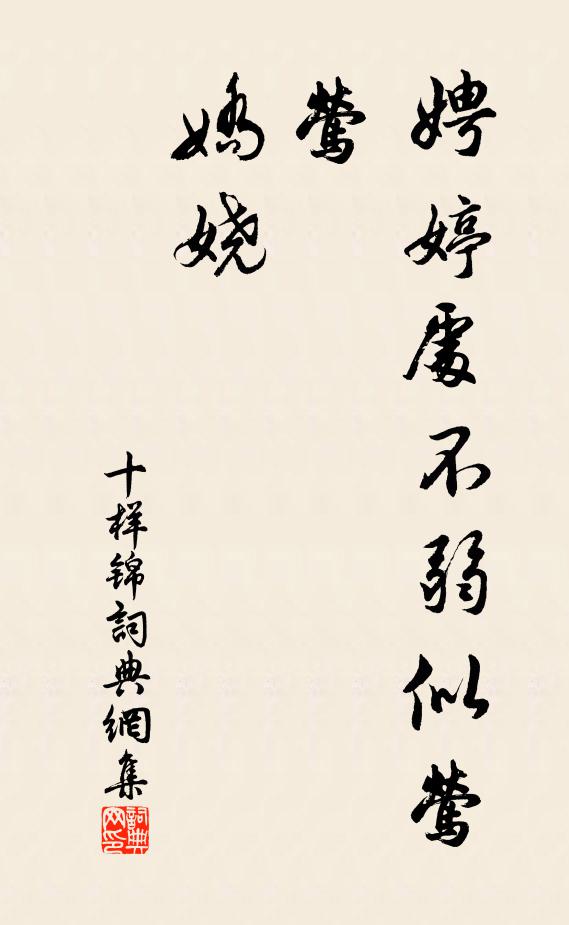 娉婷處不弱似鶯
鶯
嬌娆
十样锦詞典網集
詞典
网印